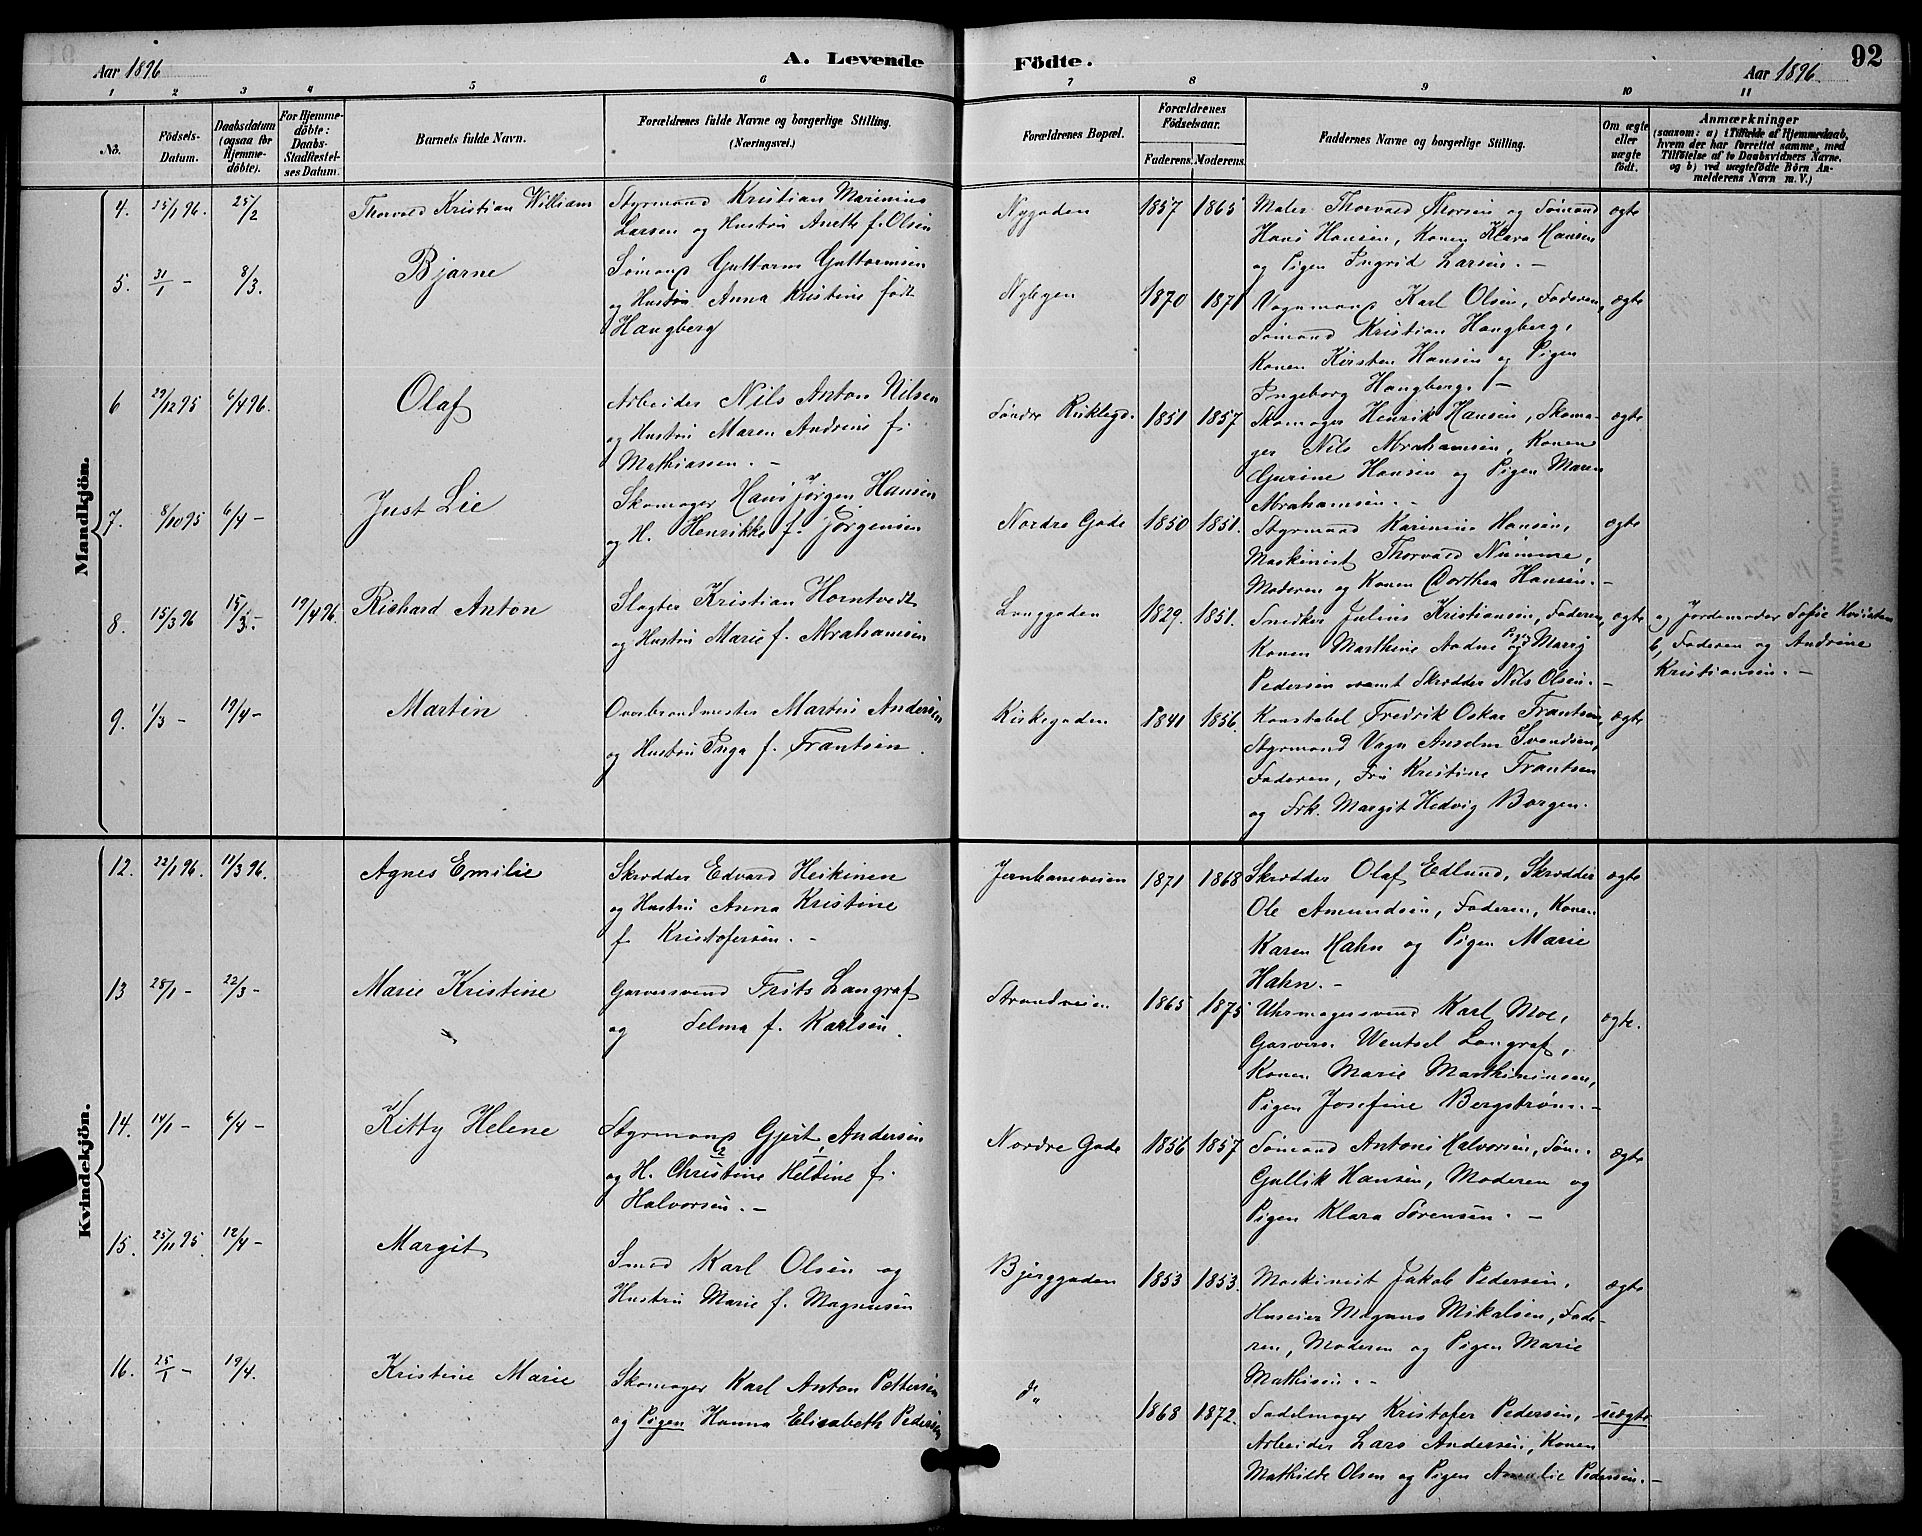 Aar 1896
A. Levende
Födte.
Aar 1896
92
1 2 3 4 5 6 7 8 9 10 11
No.
Födsels-Datum.
Daabsdatum (ogsaa for Hjemmedöbte).
For Hjemmedöbte: Daabs-Stadfæstelses Datum.
Barnets fulde Navn.
Forældrenes fulde Navne og borgerlige Stilling.
(Næringsvei.)
Forældrenes Bopæl.
Forældrenes Födselsaar.
Faderens. Moderens.
Faddernes Navne og borgerlige Stilling.
Om ægte eller uægte födt.
Anmærkninger
(saasom: a) i Tilfælde af Hjemmedaab, hvem der har forrettet samme, med Tilföielse af to Daabsvidners Navne, og b) ved uægtefödte Börn Anmelderens Navn m. V.)
Mandkjön.
4. 25/1 96. 25/2 Thorvald Kristian William
Styrmand Kristian Marinius
Larsen og Hustru Anette f. Olsen
Nygaden 1857 1865
Maler Thorvald Thorsen og Sömand
Hans Hansen, Konen Klara Hansen
og Pigen Ingrid Larsen. –
ægte
5. 31/1 – 8/3. Bjarne
Sömand Guttorm Guttormsen
og Hustru Anna Kristine födt
Haugberg
1870 1871
Vognmand Karl Olsen, Faderen,
Sömand Kristian Haugberg,
Konen Kirsten Hansen og Pigen
Ingeborg Haugberg. –
ægte
6 29/12 95 6/4 96. Olaf
Arbeider Nils Anton Nilsen
og Hustru Maren Andrine f.
Mathiassen. –
Söndre 1851 1857
Skomager Henrik Hansen, Skoma-
ger Nils Abrahamsen, Konen
Gurine Hansen og Pigen Maren
Abrahamsen. –
ægte
7. 8/10 95 6/4 – Just Lie
Skomager Hans Jörgen Hansen
og H. Henrikke f. Jörgensen
Nordre Gade 1850 1851.
Styrmand Karinius Hansen,
Maskinist Thorvald Numme,
Moderen og Konen Dorthea Hansen. –
ægte
8. 15/3 96 15/3 – 19/4 96. Richard Anton
Slagter Kristian Horntvedt
og Hustru Marie f. Abrahamsen
Langgaden 1829. 1851.
Snedker Julius Kristiansen, Faderen,
Konen Marthine Aadne og Pigen Marie
Pedersen samt Skrædder Nils Olsen. –
ægte
a, Jordemoder Sofie
b, Faderen og Andrine
Kristiansen. –
9. 1/3 – 19/4 – Martin
Overbrandmester Martin Andersen
og Hustru Inga f. Frantsen.
Kirkegaden 1841 1856.
Konstabel Fredrik Oskar Frantsen,
Styrmand Vagn Anselm Svendsen,
Faderen, Fru Kristine Frantsen
og Frk. Margit Hedvig Borgen.
ægte
Kvindekjön.
12. 22/1 96. 11/3 96. Agnes Emilie
Skrædder Edvard Heikinen
og Hustru Anna Kristine
f. Kristofersen. –
Jernbaneveien 1871 1868
Skrædder Olaf Edlund, Skrædder
Ole Amundsen, Faderen, Konen
Karen Hahn og Pigen Marie
Hahn. –
ægte
13 28/1 – 22/3 – Marie Kristine
Garversvend Frits Langraf
og Selma f. Karlsen.
Strandveien 1865 1875
Uhrmagersvend Karl Moe,
Garvers. Wentsel Langraf,
Konen Marie Marthiniusen,
Pigen Josefine Bergström. –
ægte.
14. 14/1 – 6/4 – Kitty Helene
Styrmand Gjert Andersen
og H. Christine Heldine f.
2 1
Halvorsen. –
Nordre Gade 1856 1857
Sömand Antoni Halvorsen, Söm.
Gullik Hansen, Moderen og
Pigen Klara Sörensen. –
ægte
15. 25/11 95. 12/4 – Margit
Smed Karl Olsen og
Hustru Marie f. Magnusen
Bjerggaden 1853 1853.
Maskinist Jakob Pedersen,
Huseier Magnus Mikalsen, Fade-
ren, Moderen og Pigen Marie
Mathisen. –
ægte
16. 25/1 – 19/4. Kristine Marie
Skomager Karl Anton Pettersen
og Pigen Hanna Elisabeth Pedersen
d° 1868 1872.
Sadelmager Kristofer Pedersen,
Arbeider Lars Andersen, Konen
Mathilde Olsen og Pigen Amalie Pedersen. –
uægte